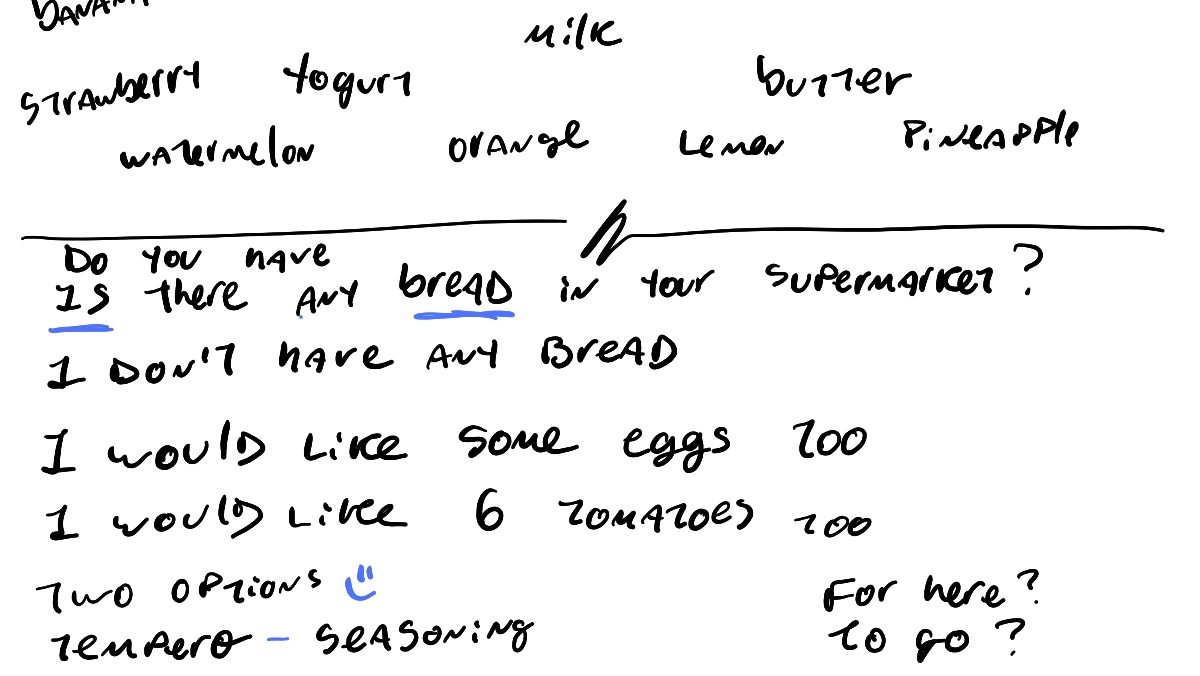 Milk
strawberry yogurt butter
watermelon orange Lemon Pineapple
Do you have
Is there any bread in your supermarket?
I don't have any bread
I would like some eggs too
I would like 6 tomatoes too
Two options
For here?
Tempero - seasoning
To go?